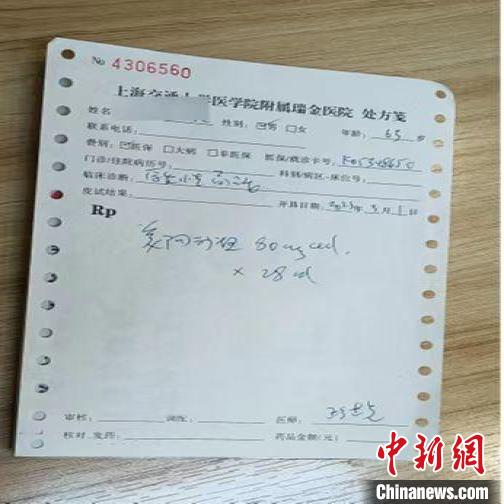 No 4306560
上海交通大学医学院附属瑞金医院 处方笺
姓名 性别: ☑男 □女 年龄: 63 岁
联系电话:
费别: ☑医保 □大病 □非医保 医保/就诊卡号:
门诊/住院病历号: 科别/病区-床位号:
临床诊断:
皮试结果: 开具日期: 2023年 5月 1日
Rp
80mg qd.
× 28d
审核: 调配: 医师:
核对、发药: 药品金额(元):
中新网
Chinanews.com